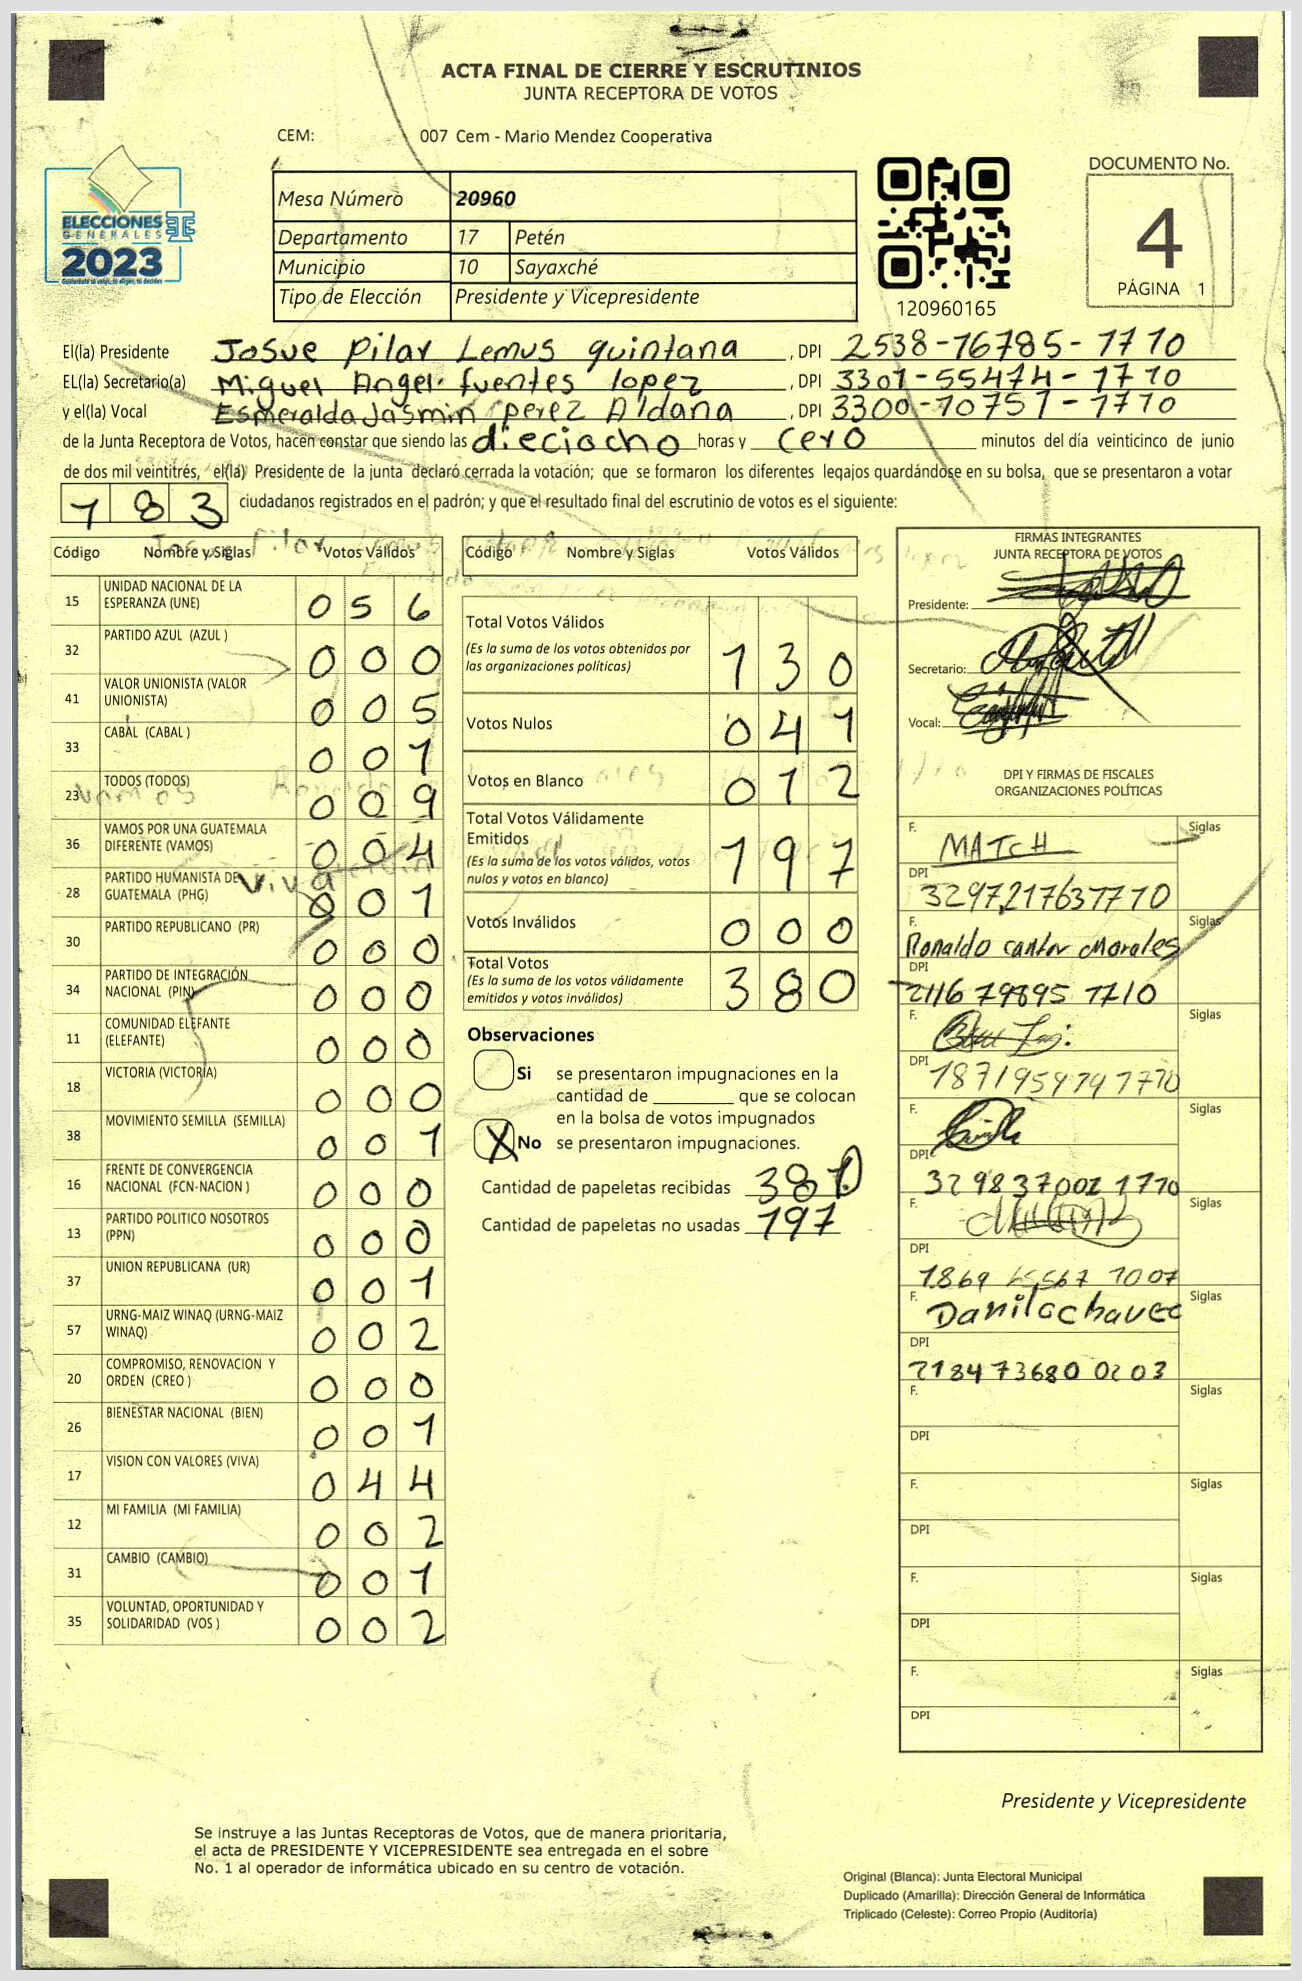 ACTA FINAL DE CIERRE Y ESCRUTINIOS
JUNTA RECEPTORA DE VOTOS
CEM: 007 Cem - Mario Mendez Cooperativa
ELECCIONES
GENERALES
2023
Mesa Número 20960
Departamento 17 Petén
Municipio 10 Sayaxché
Tipo de Elección Presidente y Vicepresidente
120960165
DOCUMENTO No.
4
PÁGINA 1
El(la) Presidente Josue Pilar Lemus quintana , DPI 2538-16785-1710
EL(la) Secretario(a) Miguel Angel fuentes lopez , DPI 3301-55474-1710
y el(la) Vocal Esmeralda Jasmin perez Aldana , DPI 3300-10751-1710
de la Junta Receptora de Votos, hacen constar que siendo las dieciocho horas y cero minutos del día veinticinco de junio
de dos mil veintitrés, el(la) Presidente de la junta declaró cerrada la votación; que se formaron los diferentes legajos quardándose en su bolsa, que se presentaron a votar
183 ciudadanos registrados en el padrón; y que el resultado final del escrutinio de votos es el siguiente:
Código Nombre y Siglas Votos Válidos
15 UNIDAD NACIONAL DE LA ESPERANZA (UNE) 056
32 PARTIDO AZUL (AZUL ) 000
41 VALOR UNIONISTA (VALOR UNIONISTA) 005
33 CABAL (CABAL ) 001
23 TODOS (TODOS) 009
36 VAMOS POR UNA GUATEMALA DIFERENTE (VAMOS) 004
28 PARTIDO HUMANISTA DE GUATEMALA (PHG) 001
30 PARTIDO REPUBLICANO (PR) 000
34 PARTIDO DE INTEGRACIÓN NACIONAL (PIN) 000
11 COMUNIDAD ELEFANTE (ELEFANTE) 000
18 VICTORIA (VICTORIA) 000
38 MOVIMIENTO SEMILLA (SEMILLA) 001
16 FRENTE DE CONVERGENCIA NACIONAL (FCN-NACION ) 000
13 PARTIDO POLITICO NOSOTROS (PPN) 000
37 UNION REPUBLICANA (UR) 001
57 URNG-MAIZ WINAQ (URNG-MAIZ WINAQ) 002
20 COMPROMISO, RENOVACION Y ORDEN (CREO ) 000
26 BIENESTAR NACIONAL (BIEN) 001
17 VISION CON VALORES (VIVA) 044
12 MI FAMILIA (MI FAMILIA) 002
31 CAMBIO (CAMBIO) 001
35 VOLUNTAD, OPORTUNIDAD Y SOLIDARIDAD (VOS ) 002
vamos
viva
Código Nombre y Siglas Votos Válidos
Total Votos Válidos 130
(Es la suma de los votos obtenidos por
las organizaciones políticas)
Votos Nulos 041
Votos en Blanco 012
Total Votos Válidamente
Emitidos 197
(Es la suma de los votos válidos, votos
nulos y votos en blanco)
Votos Inválidos 000
Total Votos 380
(Es la suma de los votos válidamente
emitidos y votos inválidos)
Observaciones
Si se presentaron impugnaciones en la
cantidad de ________ que se colocan
en la bolsa de votos impugnados
X No se presentaron impugnaciones.
Cantidad de papeletas recibidas
Cantidad de papeletas no usadas 197
FIRMAS INTEGRANTES
JUNTA RECEPTORA DE VOTOS
Presidente:
Secretario:
Vocal:
DPI Y FIRMAS DE FISCALES
ORGANIZACIONES POLÍTICAS
F. MATCH Siglas
DPI 3297217631710
F. Ronaldo cantor Morales Siglas
DPI 2116 79895 1710
F. Siglas
DPI 1871959741710
F. Siglas
DPI 329837001 1710
F. Siglas
DPI 1869
F. Danilo chavec Siglas
DPI 218473680 0203
F. Siglas
DPI
F. Siglas
DPI
F. Siglas
DPI
F. Siglas
DPI
Presidente y Vicepresidente
Se instruye a las Juntas Receptoras de Votos, que de manera prioritaria,
el acta de PRESIDENTE Y VICEPRESIDENTE sea entregada en el sobre
No. 1 al operador de informática ubicado en su centro de votación.
Original (Blanca): Junta Electoral Municipal
Duplicado (Amarilla): Dirección General de Informática
Triplicado (Celeste): Correo Propio (Auditoria)